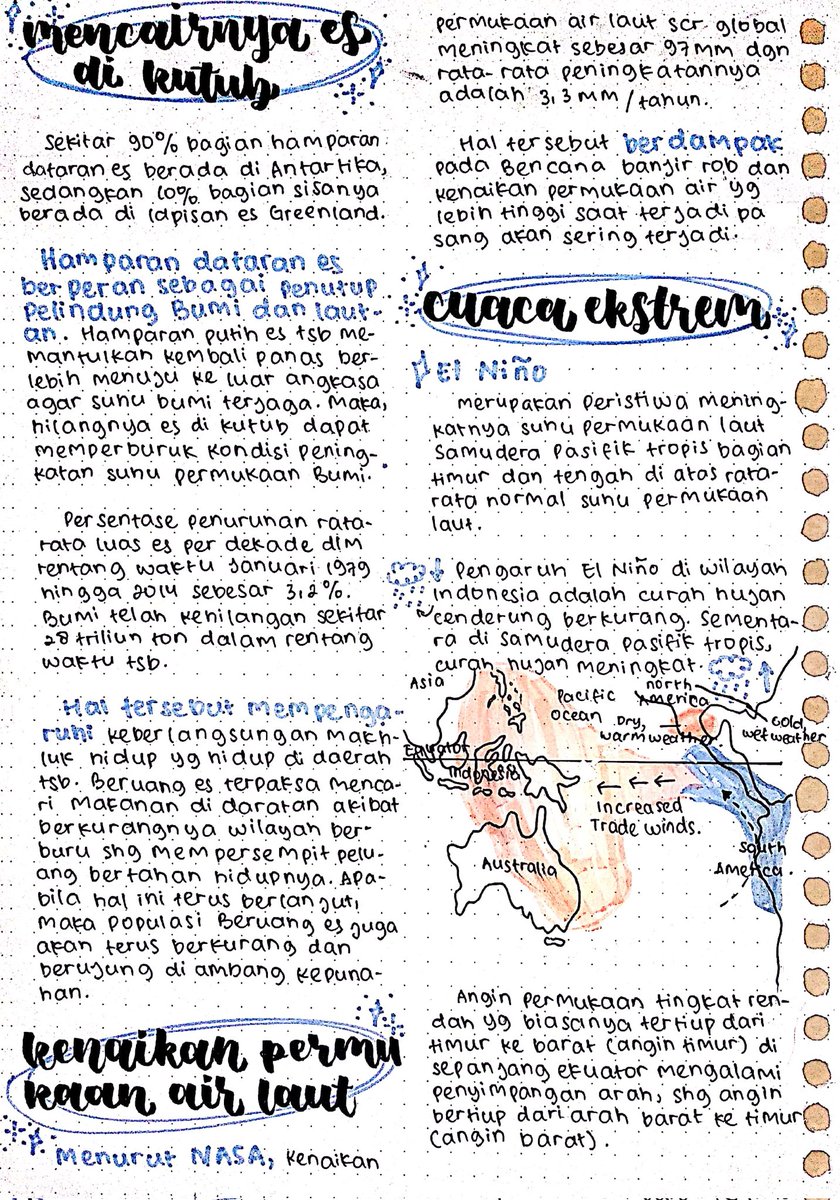 mencairnya es
di kutub
Sekitar 90% bagian hamparan
dataran es berada di Antartika,
sedangkan 10% bagian sisanya
berada di lapisan es Greenland.
Hamparan dataran es
berperan sebagai penutup
pelindung Bumi dan laut-
an. Hamparan putih es tsb me-
mantulkan kembali panas ber-
lebih menuju ke luar angkasa
agar suhu bumi terjaga. Maka,
hilangnya es di kutub dapat
memperburuk kondisi pening-
katan suhu permukaan Bumi.
Persentase penurunan rata-
rata luas es per dekade dlm
rentang waktu Januari 1979
hingga 2014 sebesar 3,2%.
Bumi telah kehilangan sekitar
28 triliun ton dalam rentang
waktu tsb.
Hal tersebut mempenga-
ruhi keberlangsungan makh-
luk hidup yg hidup di daerah
tsb. Beruang es terpaksa menca-
ri makanan di daratan akibat
berkurangnya wilayah ber-
buru shg mempersempit pelu-
ang bertahan hidupnya. Apa-
bila hal ini terus berlanjut,
maka populasi Beruang es juga
akan terus berkurang dan
berujung di ambang kepuna-
han.
kenaikan permu
kaan air laut
Menurut NASA, kenaikan
permukaan air laut scr global
meningkat sebesar 97 mm dgn
rata-rata peningkatannya
adalah 3,3 mm/tahun.
Hal tersebut berdampak
pada Bencana banjir rob dan
kenaikan permukaan air yg
lebih tinggi saat terjadi pa
sang akan sering terjadi.
cuaca ekstrem
El Niño
merupakan peristiwa mening-
katnya suhu permukaan laut
Samudera Pasifik tropis bagian
timur dan tengah di atas rata-
rata normal suhu permukaan
laut.
Pengaruh El Niño di wilayah
Indonesia adalah curah hujan
cenderung berkurang. Sementa-
ra di Samudera Pasifik tropis,
curah hujan meningkat.
Asia
Pacific
Ocean
north
America
Dry,
warm weather
Cold,
wet weather
Equator
Indonesia
Increased
Trade winds.
Australia
South
America
Angin permukaan tingkat ren-
dah yg biasanya tertiup dari
timur ke barat (angin timur) di
sepanjang ekuator mengalami
penyimpangan arah, shg angin
bertiup dari arah barat ke timur
(angin barat).